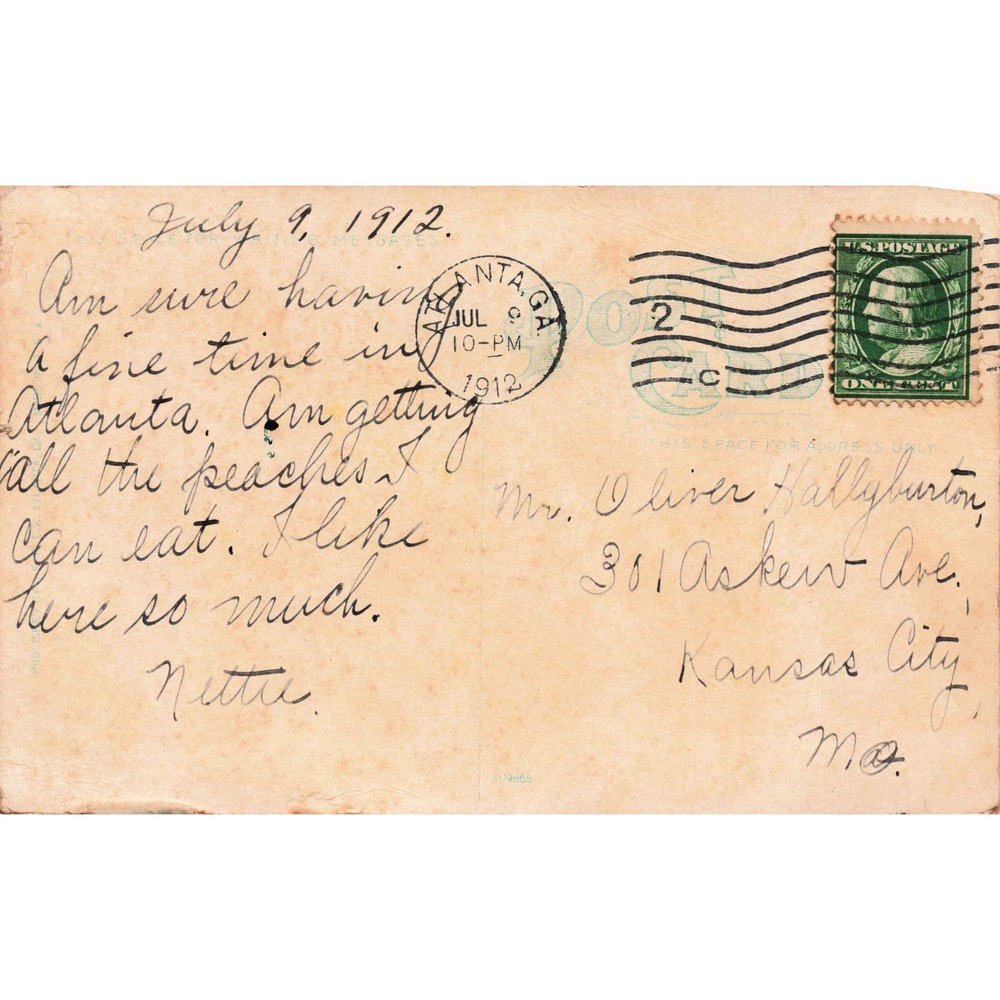 July 9, 1912.
THIS SPACE FOR WRITING MESSAGES
Am sure having
a fine time in
Atlanta. Am getting
all the peaches I
can eat. I like
here so much.
Nettie.
ATLANTA, GA.
JUL 9
10-PM
1912
2
C
POST
CARD
U.S. POSTAGE
ONE CENT
THIS SPACE FOR ADDRESS ONLY
Mr. Oliver Hallyburton,
301 Askew Ave.,
Kansas City,
Mo.